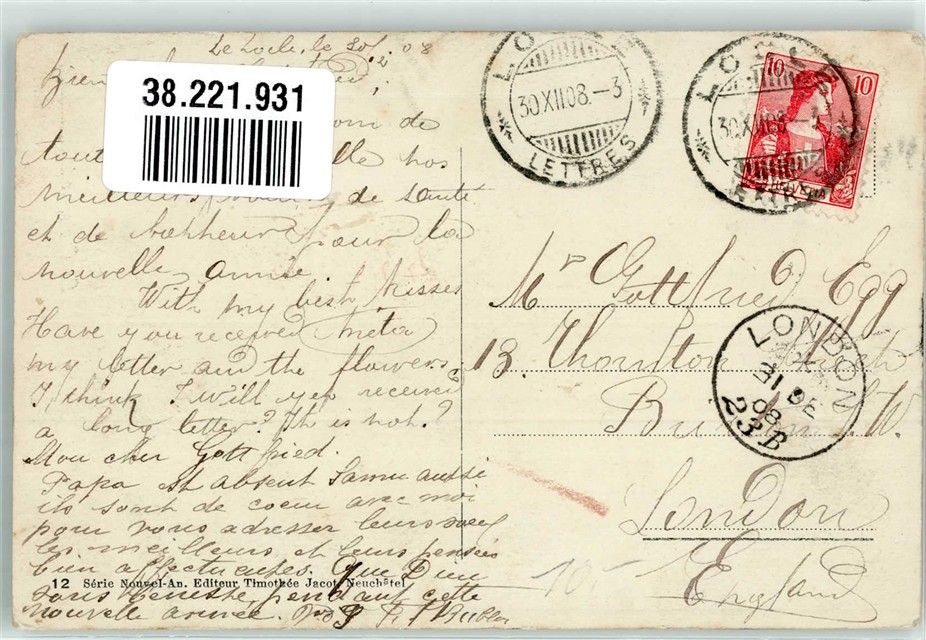 Le Locle, le 30/12 08
38.221.931
nom de
tout
nos
meilleurs de santé
et de bonheur pour la
nouvelle année.
With my best kisses
Have you received
my letter and the flowers.
I think I will yes receive
a long letter? It is not?
Mon cher Gottfried.
Papa est absent Samu aussi
ils sont de coeur avec moi
pour vous adresser leurs voeux
les meilleurs et leurs pensées
bien affectueuses. Que Dieu
vous bénisse pendant cette
nouvelle année.
12 Série Nouvel-An. Editeur Timothée Jacot, Neuchâtel
LOCLE
30.XII.08.-3
LETTRES
LOCLE
30.XII.08.-
10 10
HELVETIA
Mr Gottfried Egg
13, Thornton
S.W.
London
England
LONDON
31 DE
08
23B